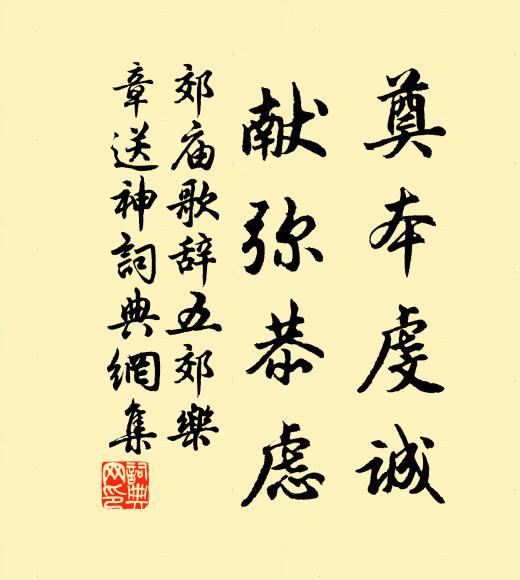 奠本虔诚
献弥恭虑
郊庙歌辞五郊樂
章送神詞典網集
詞典网印